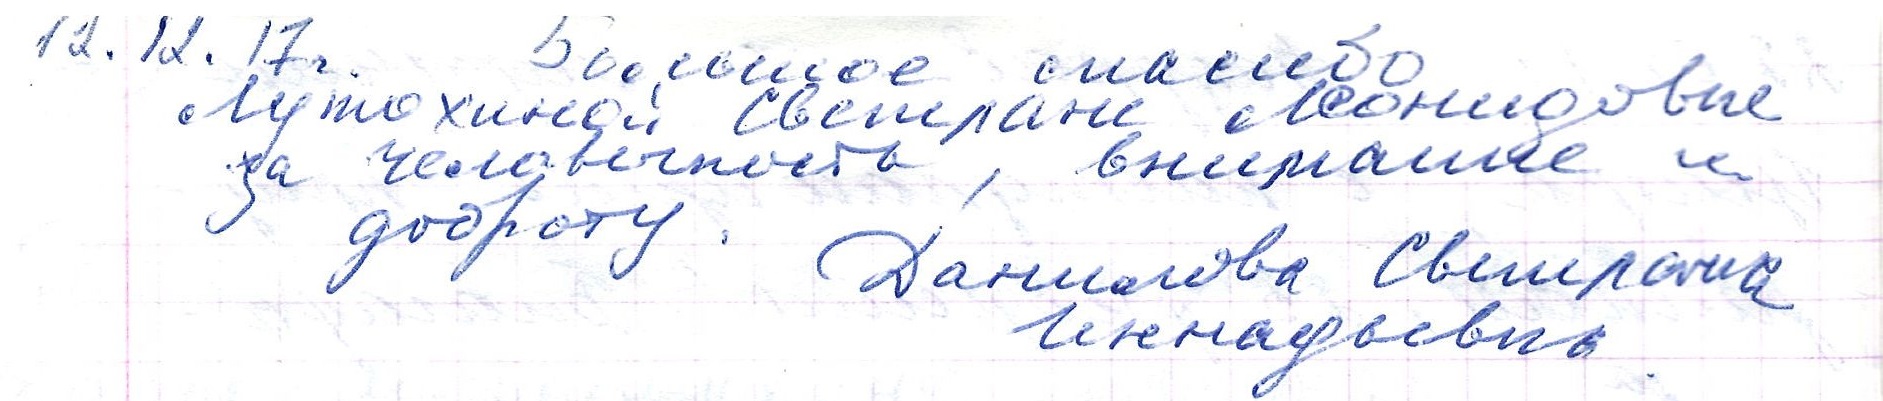 12.12.17г. Большое спасибо
Лутохиной Светлане Леонидовне
за человечность, внимание и
доброту.
Данилова Светлана
Геннадьевна